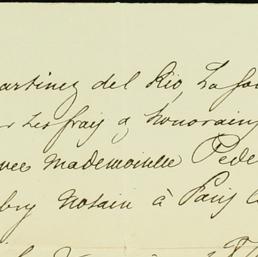 artinez del Rio, La so
r les frais & honorair
vées Mademoiselle Pede
bry Notaire à Paris l